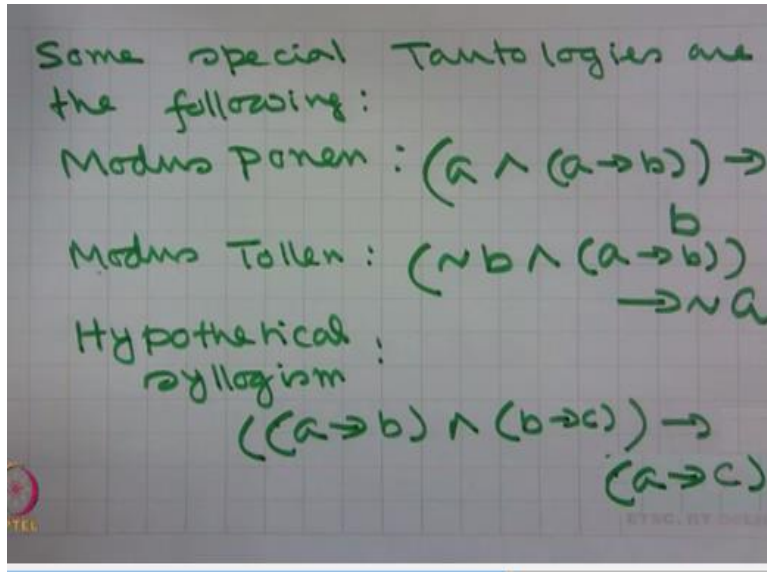 Some special Tautologies are
the following:
Modus Ponen : (a ∧ (a→b)) →
b
Modus Tollen : (~b ∧ (a→b))
→ ~a
Hypothetical :
syllogism
((a→b) ∧ (b→c)) →
(a→c)
PTEL
ETSC, IIT DELHI